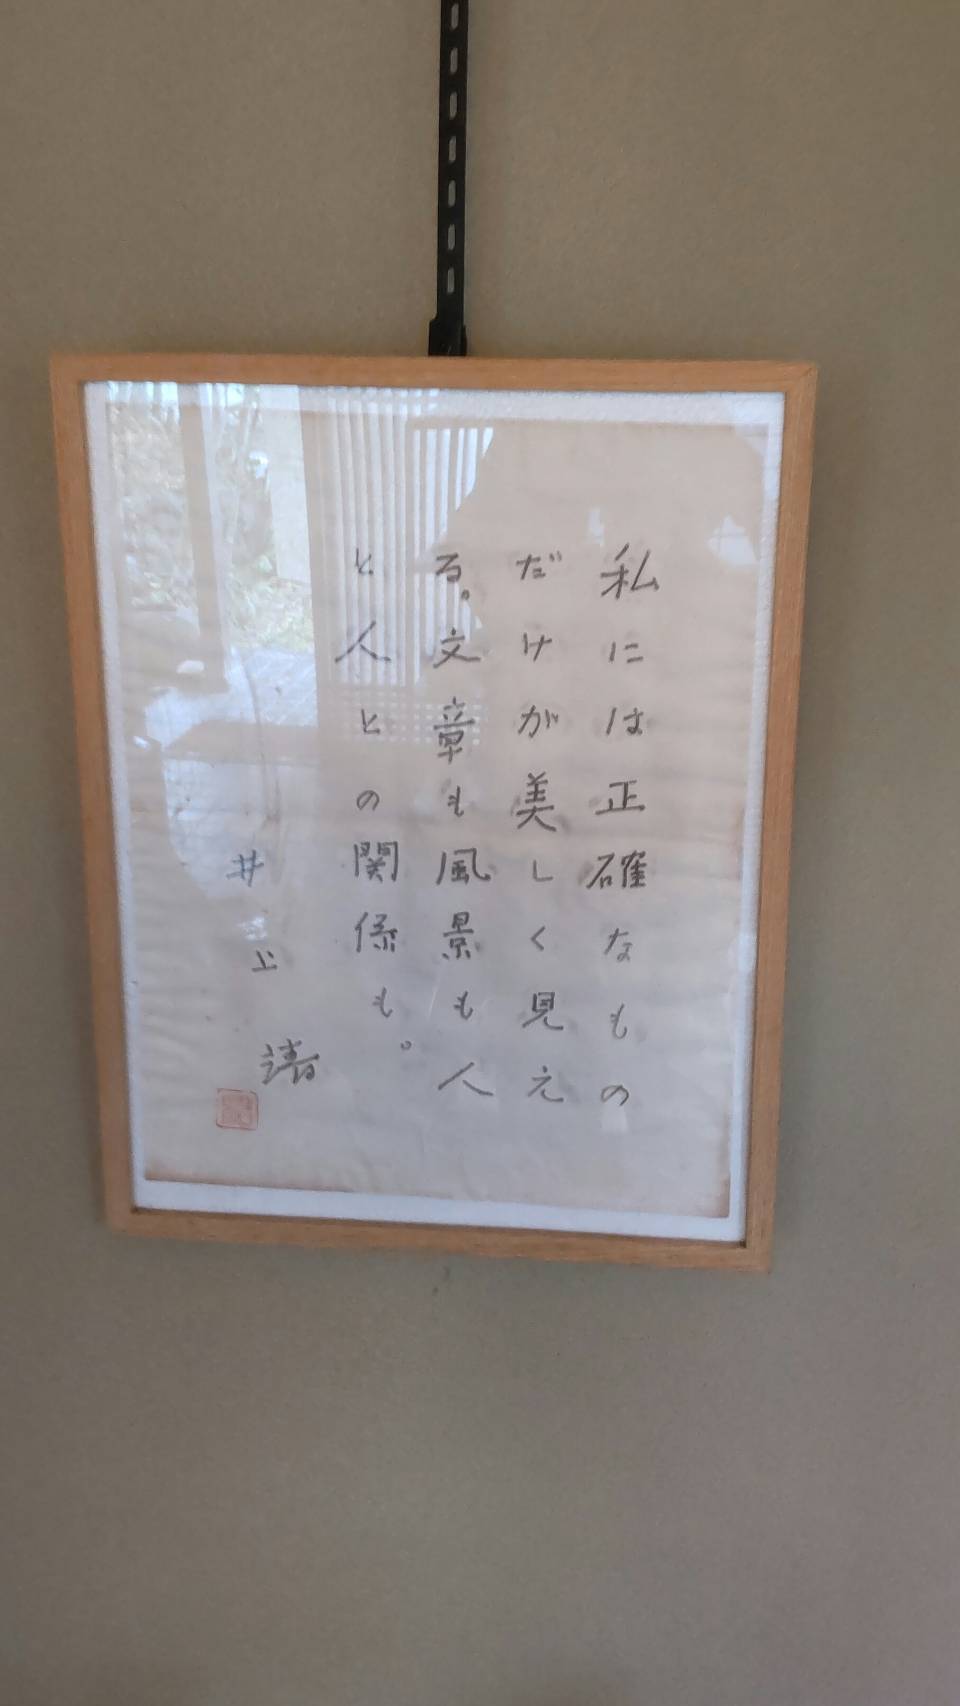 私には正確なもの
だけが美しく見え
る。文章も風景も人
と人との関係も。
井上靖